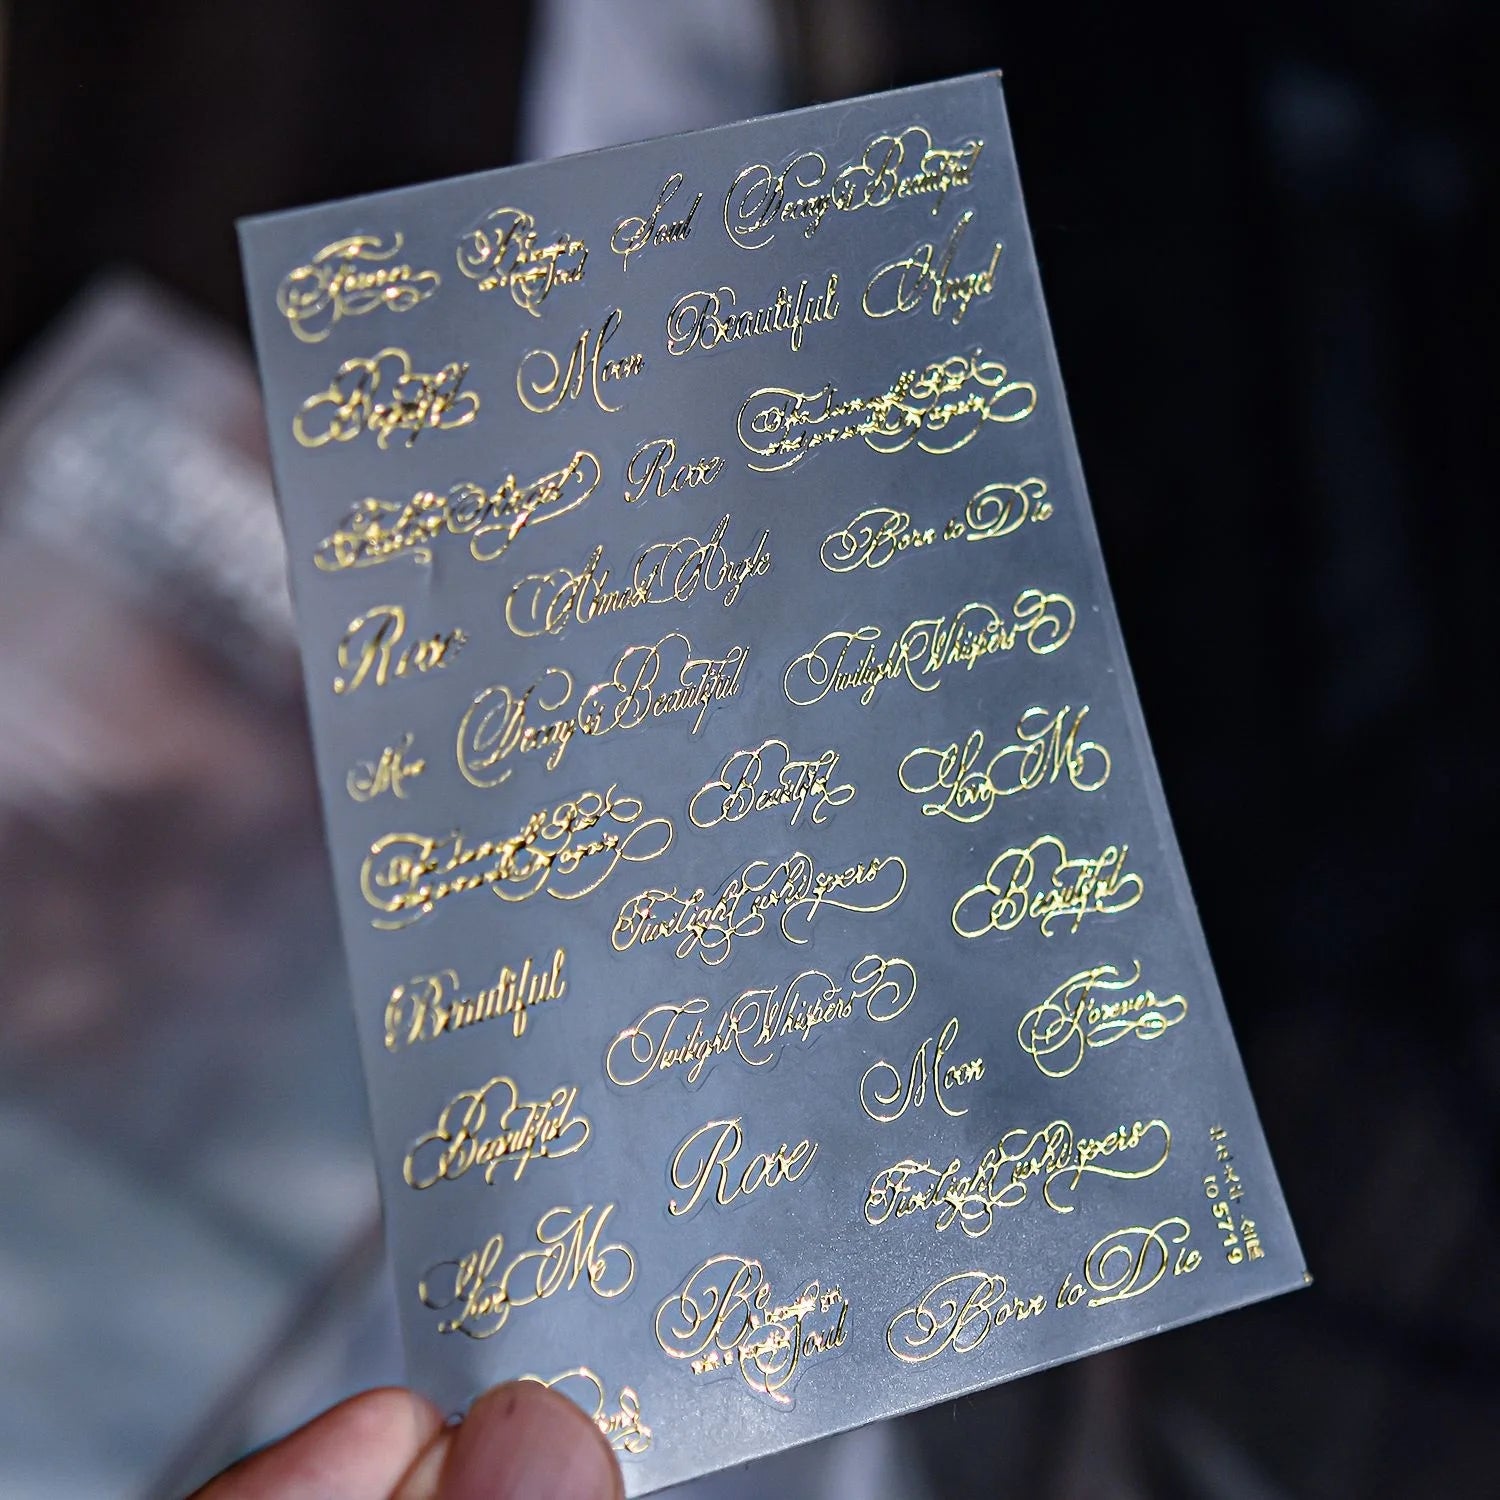 Forever
Be
Soul
Soul
Decay is Beautiful
Beautiful
Moon
Beautiful
Angel
Fallen Angel
Rose
again
Rose
Almost Angle
Born to Die
Decay is Beautiful
Twilight Whispers
Beautiful
Love Me
again
Twilight whispers
Beautiful
Beautiful
Twilight Whispers
Moon
Forever
Beautiful
Rose
Twilight whispers
Love Me
Be
Soul
Born to Die
TO 5719